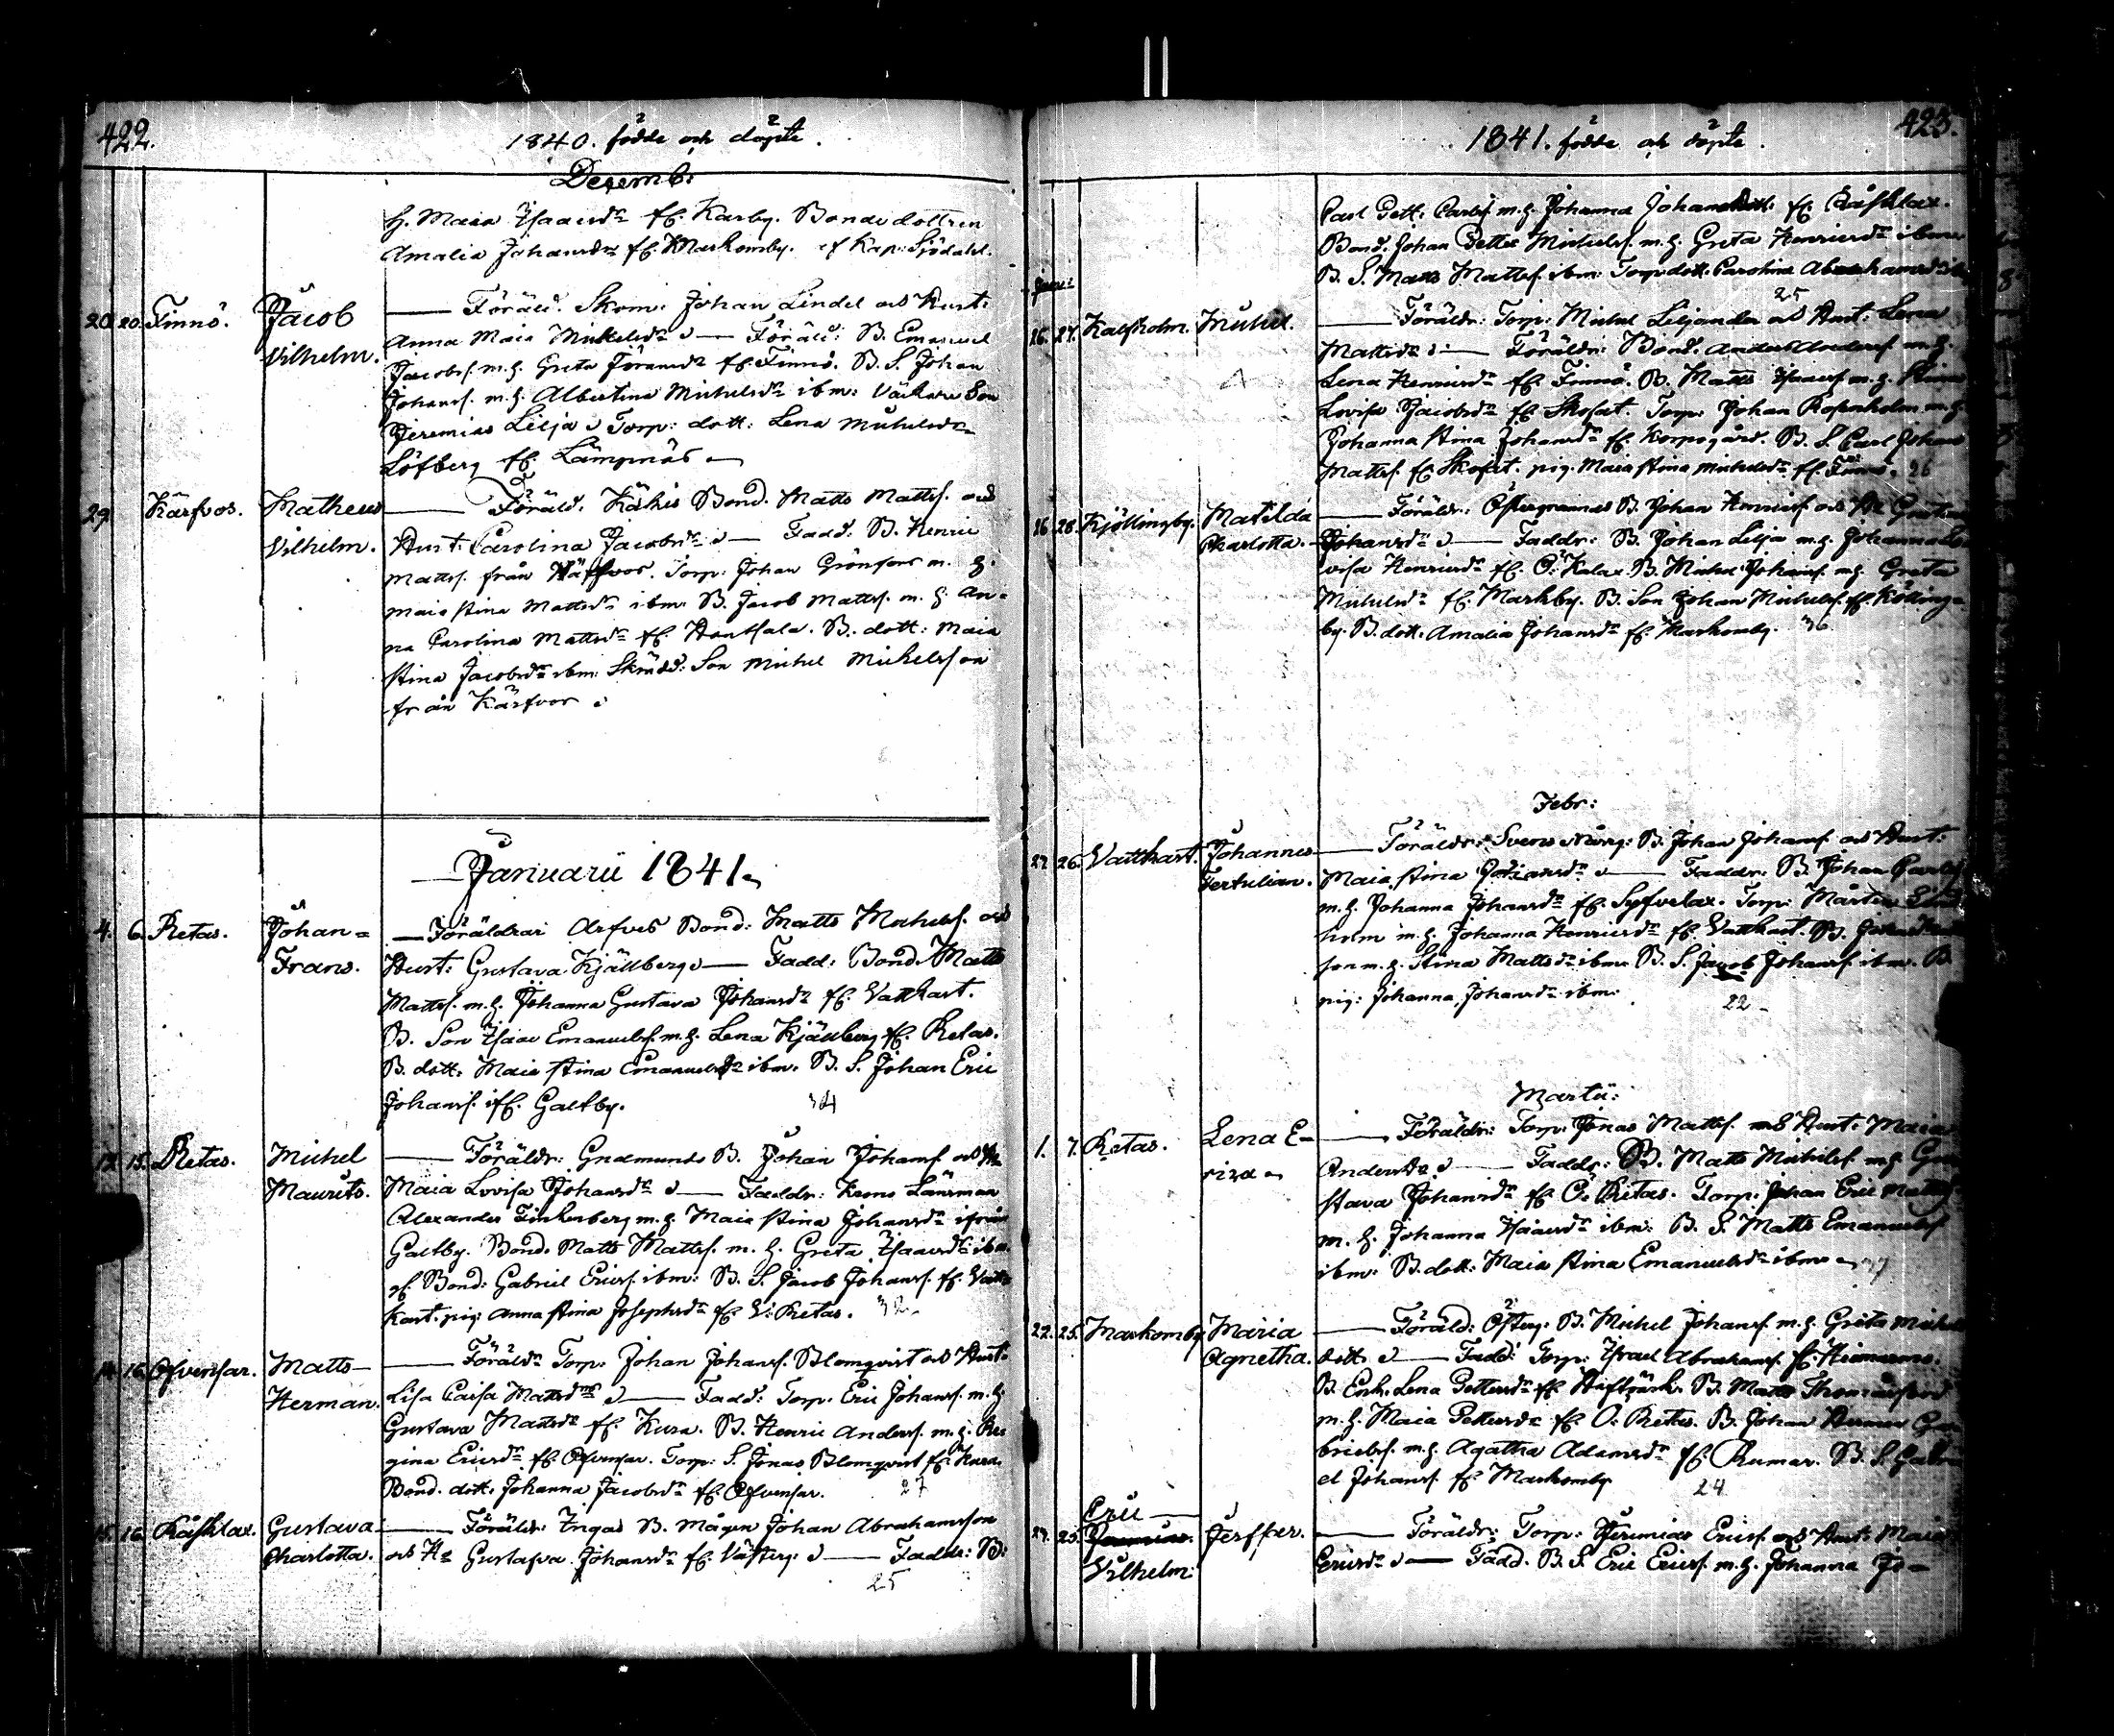 422.
1840. födde och döpte.
Desemb:
H. Maria Isaacsdr fr. Karby. Bonde dottren
Amalia Johansdr fr. Markomby. af Kap: Sjödahl.
20. 20. Finnö. Jacob — Föräld. Skom: Johan Lindel och Hust:
Vilhelm. Anna Maia Mickelsdr — Föräld: B. Emanuel
Jacobs. m. h. Greta Göransdr fr. Finnö. B. S. Johan
Johans. m. h. Albertina Michelsdr ibm: Väckare Son
Jeremias Lilja Torp: dott: Lena Michelsdr
Löfberg fr. Lämpnäs
29 Kärfvos. Matheus — Föräld. Kähis Bond. Matts Matts. och
Vilhelm. Hust: Carolina Jacobsdr — Fadd. B. Henric
Matts. från Käffvos. Torp: Johan Grönfors m. h.
Maia Stina Mattsdr ibm. B. Jacob Matts. m. h. An-
na Carolina Mattsdr fr. Hontsala. B. dott: Maia
Stina Jacobsdr ibm: Skrädd: Son Michel Michelsson
från Kärfvos
Januarii 1841.
4. 6. Retas. Johan = — Föräldrar Arfves Bond: Matts Michels. och
Frans. Hust: Gustava Kjällberg — Fadd: Bond. Matts
Matts. m. h. Johanna Gustava Johansdr fr. Vattkast.
B. Son Isaac Emanuels. m. h. Lena Kjällberg fr. Retas.
B. dott: Maia Stina Emanuelsdr ibm. B. S. Johan Eric
Johans. ifr. Galtby. 34
12. 15. Retas. Michel — Föräldr: Gudmunds B. Johan Johans. och H:
Maurits. Maia Lovisa Johansdr — Faddr: Krono Länsman
Alexander Finkenberg m. h. Maia Stina Johansdr ifrån
Galtby. Bond. Matts Matts. m. h. Greta Isaacsdr ibm.
Bond: Gabriel Erics. ibm: B. S. Jacob Johans. fr. Vatt-
kast. pig: Anna Stina Josephsdr fr. V. Retas.
14. 16. Ofvensar. Matts — — Föräldr Torp: Johan Johans. Blomqvist och Hust.
Herman. Lisa Caisa Mattsdr — Fadd: Torp: Eric Johans. m. h.
Gustava Mattsdr fr. Kura. B. Henric Anders. m. h. Re-
gina Ericsdr fr. Ofvensar. Torp: S. Jonas Blomqvist fr. Kura.
Bond. dott. Johanna Jacobsdr fr. Ofvensar. 27
15. 16. Råsklax. Gustava — Föräldr: Ingas B. Mågen Johan Abrahamsson
Charlotta. och H: Gustafva Johansdr fr. Väster: — Faddr: B:
25
423.
1841. födde och döpte.
Carl Pett: Carls. m. h. Johanna Johansdott: fr. Råsklax.
Bond. Johan Petter Michels. m. h. Greta Henricsdr ibm
B. S. Matts Matts. ibm: Torp dott. Carolina Abrahamsdr
25
Janu:
26. 27. Kalfholm. Michel. — Föräldr: Torp: Michel Liljander och Hust: Lena
Mattsdr — Föräldr: Bond. Anders Anders. m. h.
Lena Henricsdr fr. Finnö. B. Matts Isaacs. m. h. Stina
Lovisa Jacobsdr fr. Skofat. Torp: Johan Rosenholm m. h.
Johanna Stina Johansdr fr. Korpogård. B. S. Carl Johan
Matts. fr. Skofat. pig. Maia Stina Michelsdr fr. Finnö. 26
26 28. Kjöttingby. Matilda — Föräldr: Östergrannas B. Johan Henrics. och
Charlotta. Johansdr — Faddr: B. Johan Lilja m. h. Johanna Lo-
visa Henricsdr fr. O: Kalax. B. Michel Johans. m. h. Greta
Michelsdr fr. Markby. B. Son Johan Michels. fr. Kötting-
by. B. dott. Amalia Johansdr fr. Markomby. 36
Febr:
22. 26. Vattkast. Johannes — Föräldr: B. Johan Johans. och Hust:
Tertulian. Maia Stina — Faddr: B. Johan
m. h. Johanna Johansdr fr. Syfvelax. Torp: Mårten
holm m. h. Johanna Henricsdr fr. Vattkast. B.
son m. h. Stina Mattsdr ibm. B. S. Jacob Johans. ibm. B.
pig: Johanna Johansdr ibm. 22
Martii:
1. 7. Retas. Lena E- — Föräldr: Torp: Jonas Matts. och Hust: Maia
rica Andersdr — Faddr: B. Matts Michels. m. h. Gu-
stava Johansdr fr. Ö. Retas. Torp. Johan Eric Matts
m. h. Johanna Isaacsdr ibm: B. S. Matts Emanuels
ibm: B. dott: Maia Stina Emanuelsdr ibm
22. 25. Markomby Maria — Föräld: Österg: B. Michel Johans. m. h. Greta Michels
Agnetha. dott. — Fadd: Torp: Israel Abrahams. fr.
B. Enk. Lena Pettersdr fr. B. Matts
m. h. Maia Pettersdr fr. O. Retas. B. Johan Herman Ga-
briels. m. h. Agatha Adamsdr fr. Rumar. B. S. Gabri-
el Johans. fr. Markomby 24
Eric —
24. 25. Jeremias. Jerffer. — Föräldr: Torp: Jeremias Erics. och Hust: Maia
Vilhelm. Ericsdr — Fadd. B. S. Eric Erics. m. h. Johanna Jo-